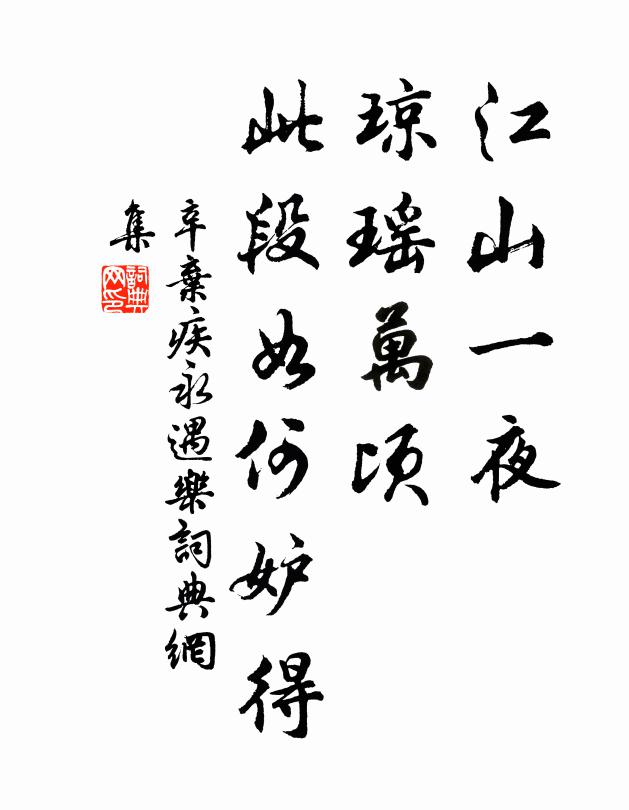 江山一夜
琼瑶萬頃
此段如何妒得
辛棄疾永遇樂詞典網
集
詞典
网印